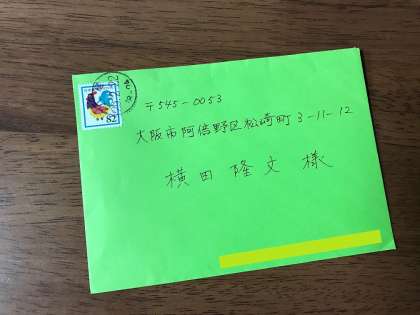 〒545-0053
大阪市阿倍野区松崎町3-11-12
横田隆文様
82